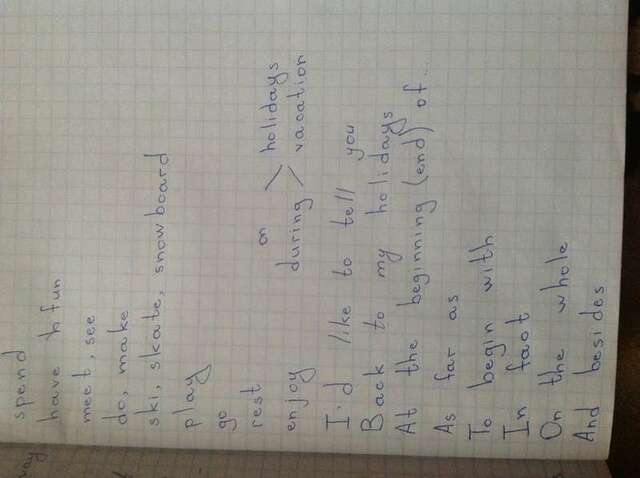 spend
have fun
meet, see
do, make
ski, skate, snowboard
play
go
rest
on holidays
enjoy during vacation
I'd like to tell you
Back to my holidays
At the beginning (end) of...
As far as
To begin with
In fact
On the whole
And besides